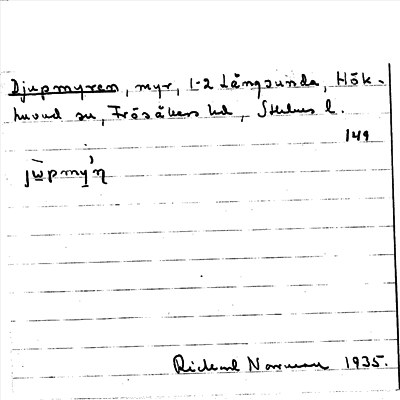 Djupmyren, myr, 1-2 Långsunda, Hök-
huvud sn, Frösåkers hd, Sthlms l.
149
jẁpmý̱ŋ
Rickard Norman 1935.